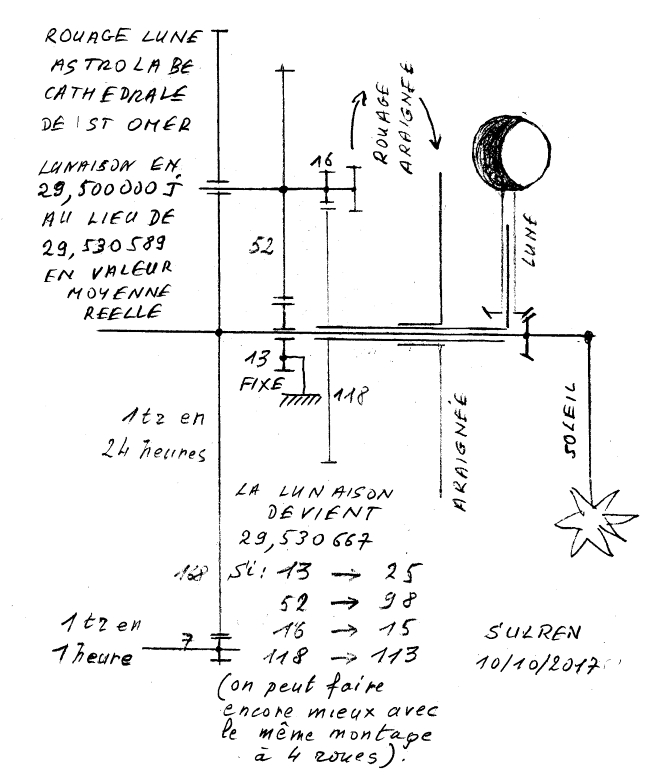 ROUAGE LUNE
ASTROLABE
CATHEDRALE
DE ST OMER
LUNAISON EN
29,500000 J
AU LIEU DE
29,530589
EN VALEUR
MOYENNE
REELLE
16
ROUAGE
ARAIGNÉE
52
LUNE
13
FIXE
118
1 tr en
24 heures
ARAIGNÉE
SOLEIL
LA LUNAISON
DEVIENT
29,530667
168
Si: 13 → 25
52 → 98
16 → 15
118 → 113
1 tr en
1 heure
7
(on peut faire
encore mieux avec
le même montage
à 4 roues).
SULREN
10/10/2017